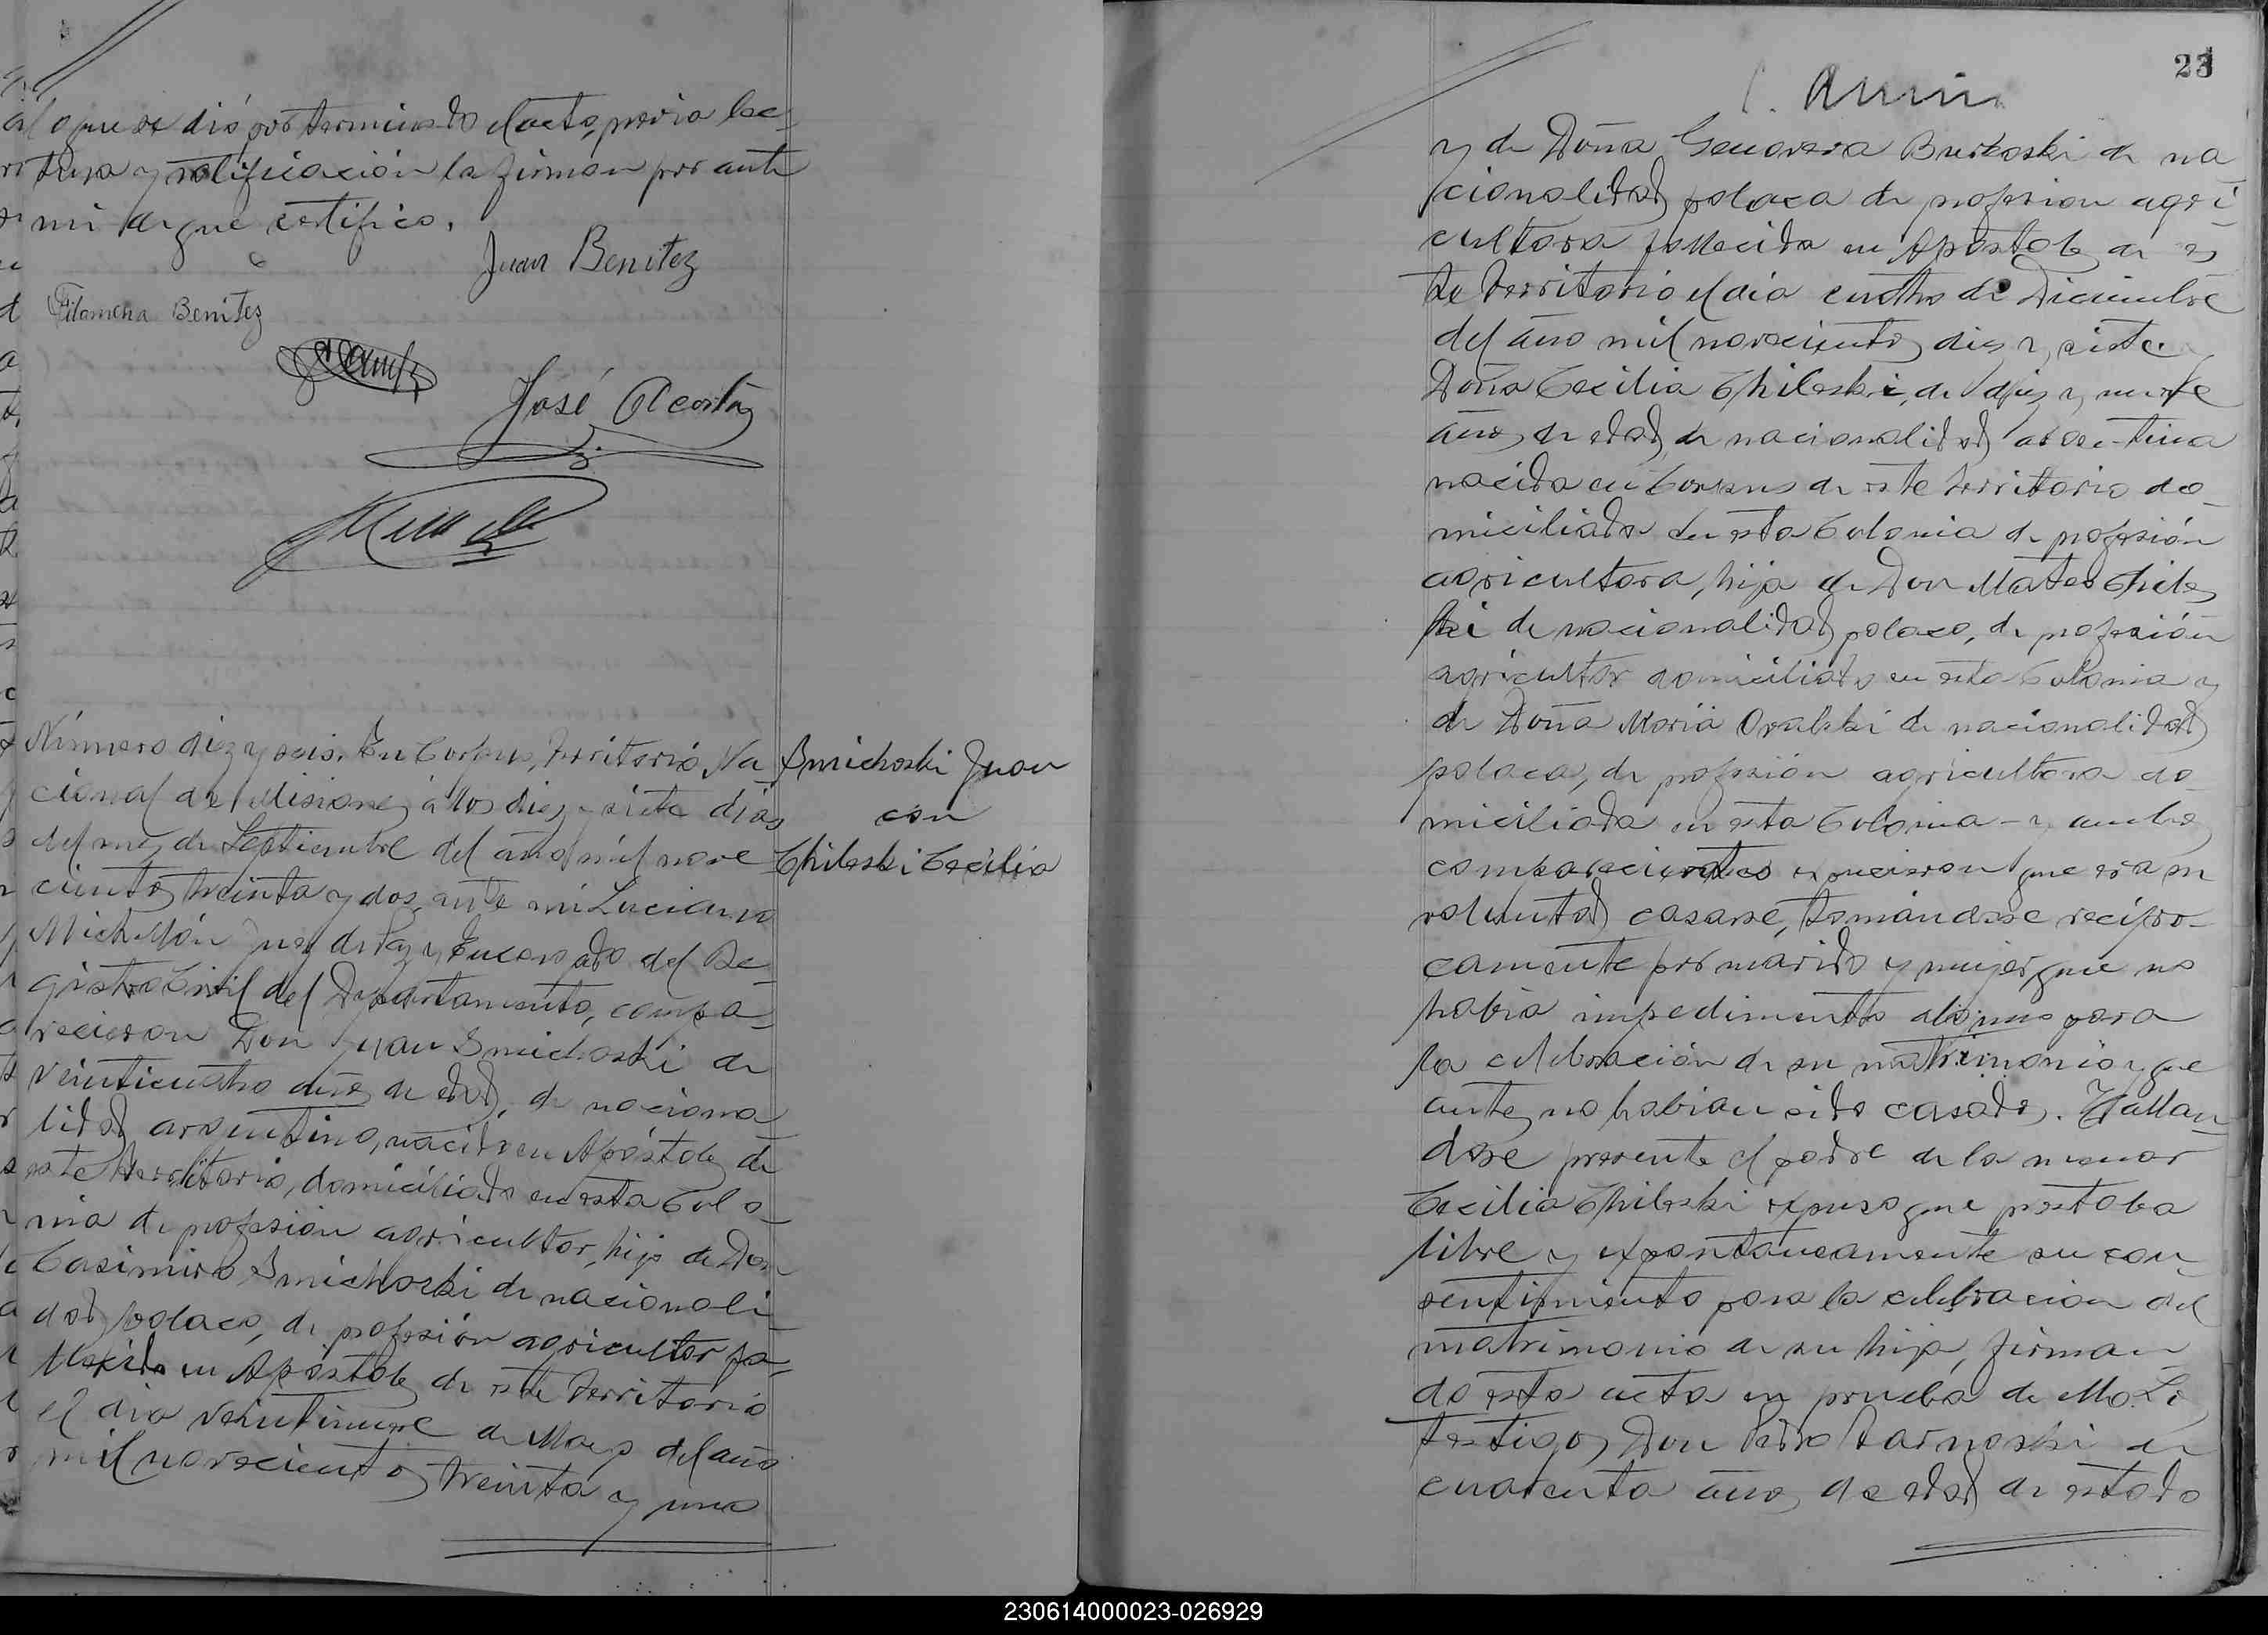 al que se dió por terminado el acto, previa lec-
tura y ratificación la firman por ante
mi de que certifico.
Juan Benitez
Filomena Benitez
José Acosta
Número diez y seis. En Corpus, Territorio Na-
cional de Misiones á los diez y siete dias
del mes de Septiembre del año mil nove
cientos treinta y dos, ante mi Luciano
Michellón Juez de Paz y Encargado del Re-
gistro Civil del Departamento, compa-
recieron Don Juan Smichoski de
veinticuatro años de edad, de naciona
lidad argentino, nacido en Apóstoles de
este territorio, domiciliado en esta Colo-
nia de profesión agricultor, hijo de Don
Casimiro Smichoski de nacionali-
dad polaco, de profesión agricultor fa-
llecido en Apóstoles de este territorio
el dia veintinueve de Mayo del año
mil novecientos treinta y uno
Smichoski Juan
con
Chileski Cecilia
23
y de Doña Genoveva Burkoski de na
cionalidad polaca de profesion agri-
cultora fallecida en Apostoles de es
te territorio el dia cuatro de Diciembre
del año mil novecientos diez y siete
Doña Cecilia Chileski, de diez y nueve
años de edad, de nacionalidad argentina
nacida en Corpus de este territorio do-
miciliada en esta Colonia de profesión
agricultora, hija de Don Mateo Chiles
ki de nacionalidad polaco, de profesión
agricultor domiciliado en esta Colonia y
de Doña Maria Oralski de nacionalidad
polaca, de profesión agricultora do-
miciliada en esta Colonia - y ambos
comparecientes expusieron que era su
voluntad casarse, tomándose recipro-
camente por marido y mujer, que no
habia impedimento alguno para
la celebración de su matrimonio y que
antes no habian sido casados. Hallan-
dose presente el padre de la menor
Cecilia Chileski expuso que prestaba
libre y expontaneamente su con-
sentimiento para la celebracion del
matrimonio de su hija, firman-
do esta acta en prueba de ello. Los
testigos Don Pedro Tarnoski de
cuarenta años de edad de estado
230614000023-026929